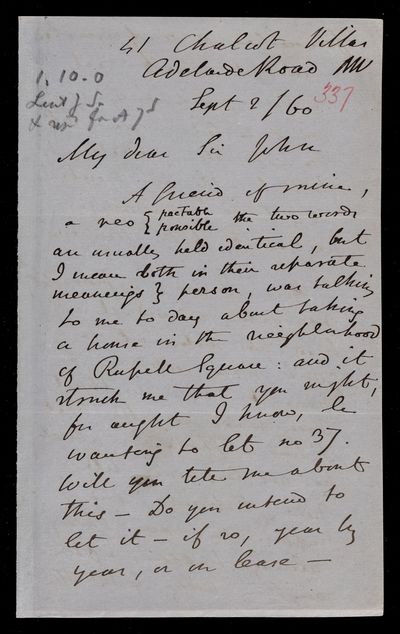 41 Chalcot Villas
Adelaide Road NW
1.10.0
Sept 2/60
337
My dear Sir John
A friend of mine,
a res { pectable the two words
{ ponsible
are usually held identical, but
I mean both in their separate
meanings } person, was talking
to me to day about taking
a house in the neighbourhood
of Russell Square: and it
struck me that you might,
for aught I know, be
wanting to let no 37.
Will you tell me about
this — Do you intend to
let it — if so, year by
year, or on lease —